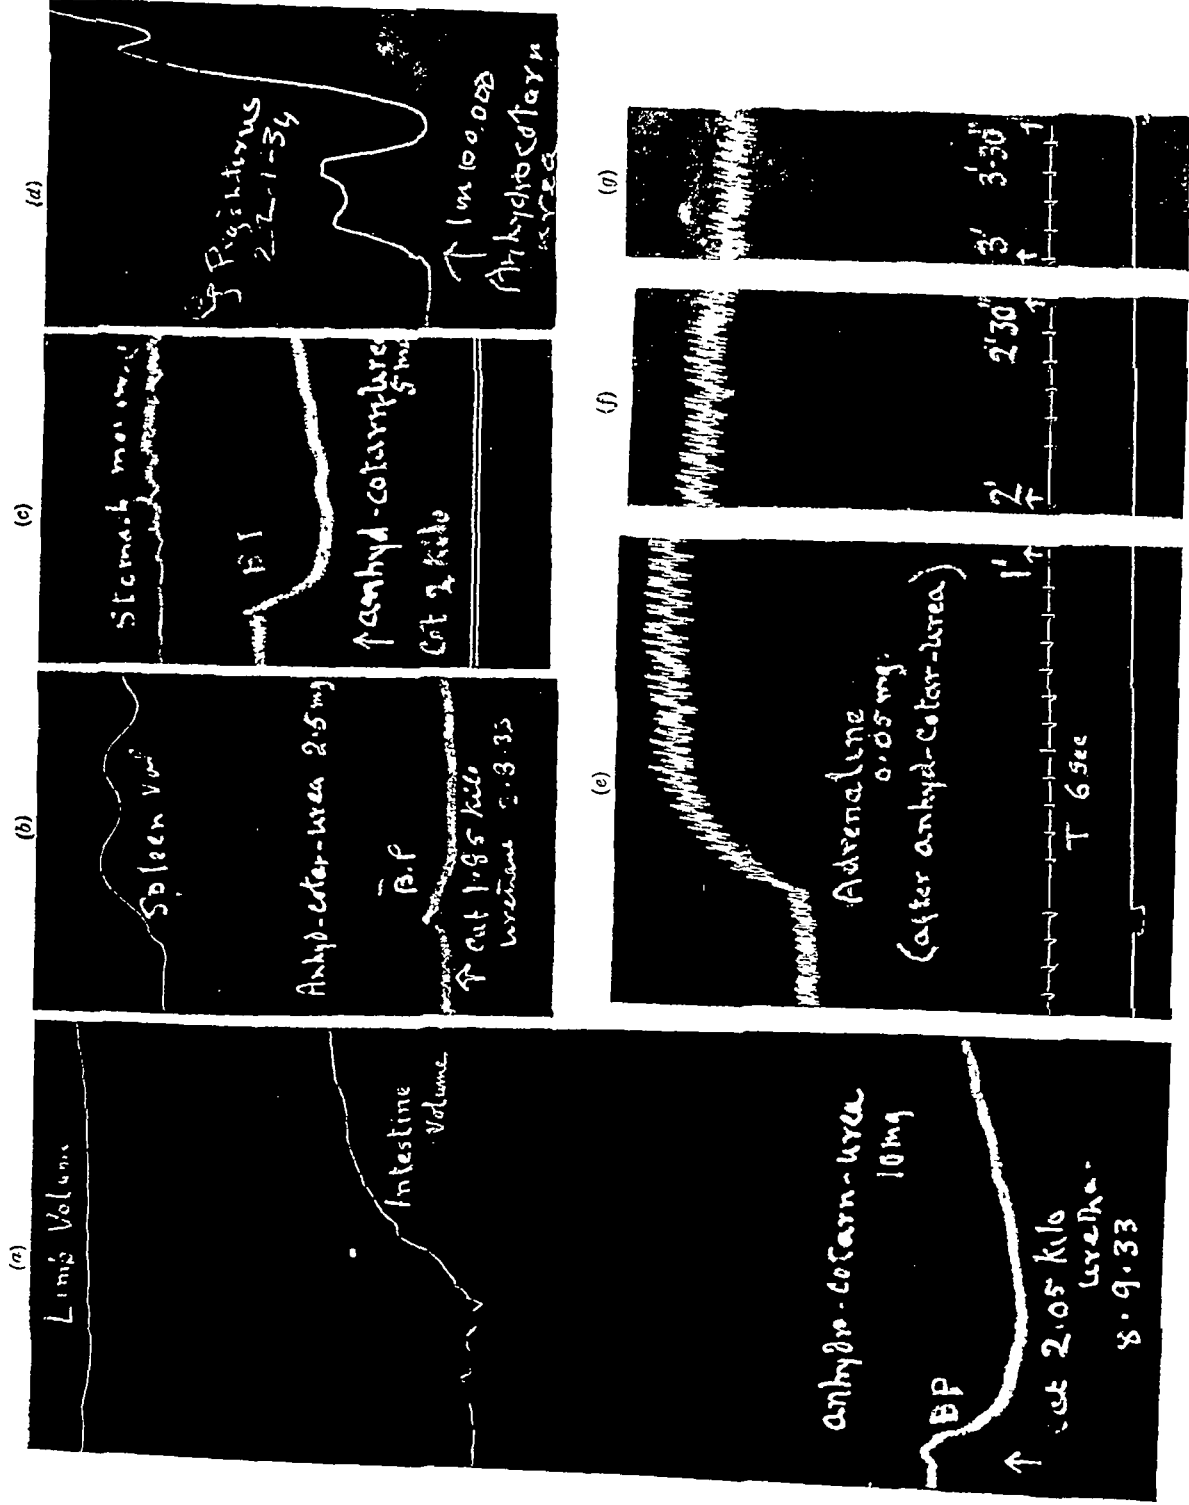 (a)
Limb Volume
Intestine
Volume
anhydro-cotarn-urea
10mg
BP
↑ Cat 2.05 kilo
uretha-
8.9.33
(b)
Spleen Vol
Anhyd-cotar-urea 2.5mg
B.P
↑ Cat 1.85 kilo
urethane
(c)
Stomach
↑ anhyd-cotarn
5 m
Cat 2 kilo
(d)
Pig uterus
22-1-34
↑ 1 in 100,000
Anhydrocotarn
urea
(e)
Adrenaline
0.05 mg.
(after anhyd-Cotar-urea)
1'
T 6 sec
(f)
2' 2'30"
(g)
3' 3'-30"